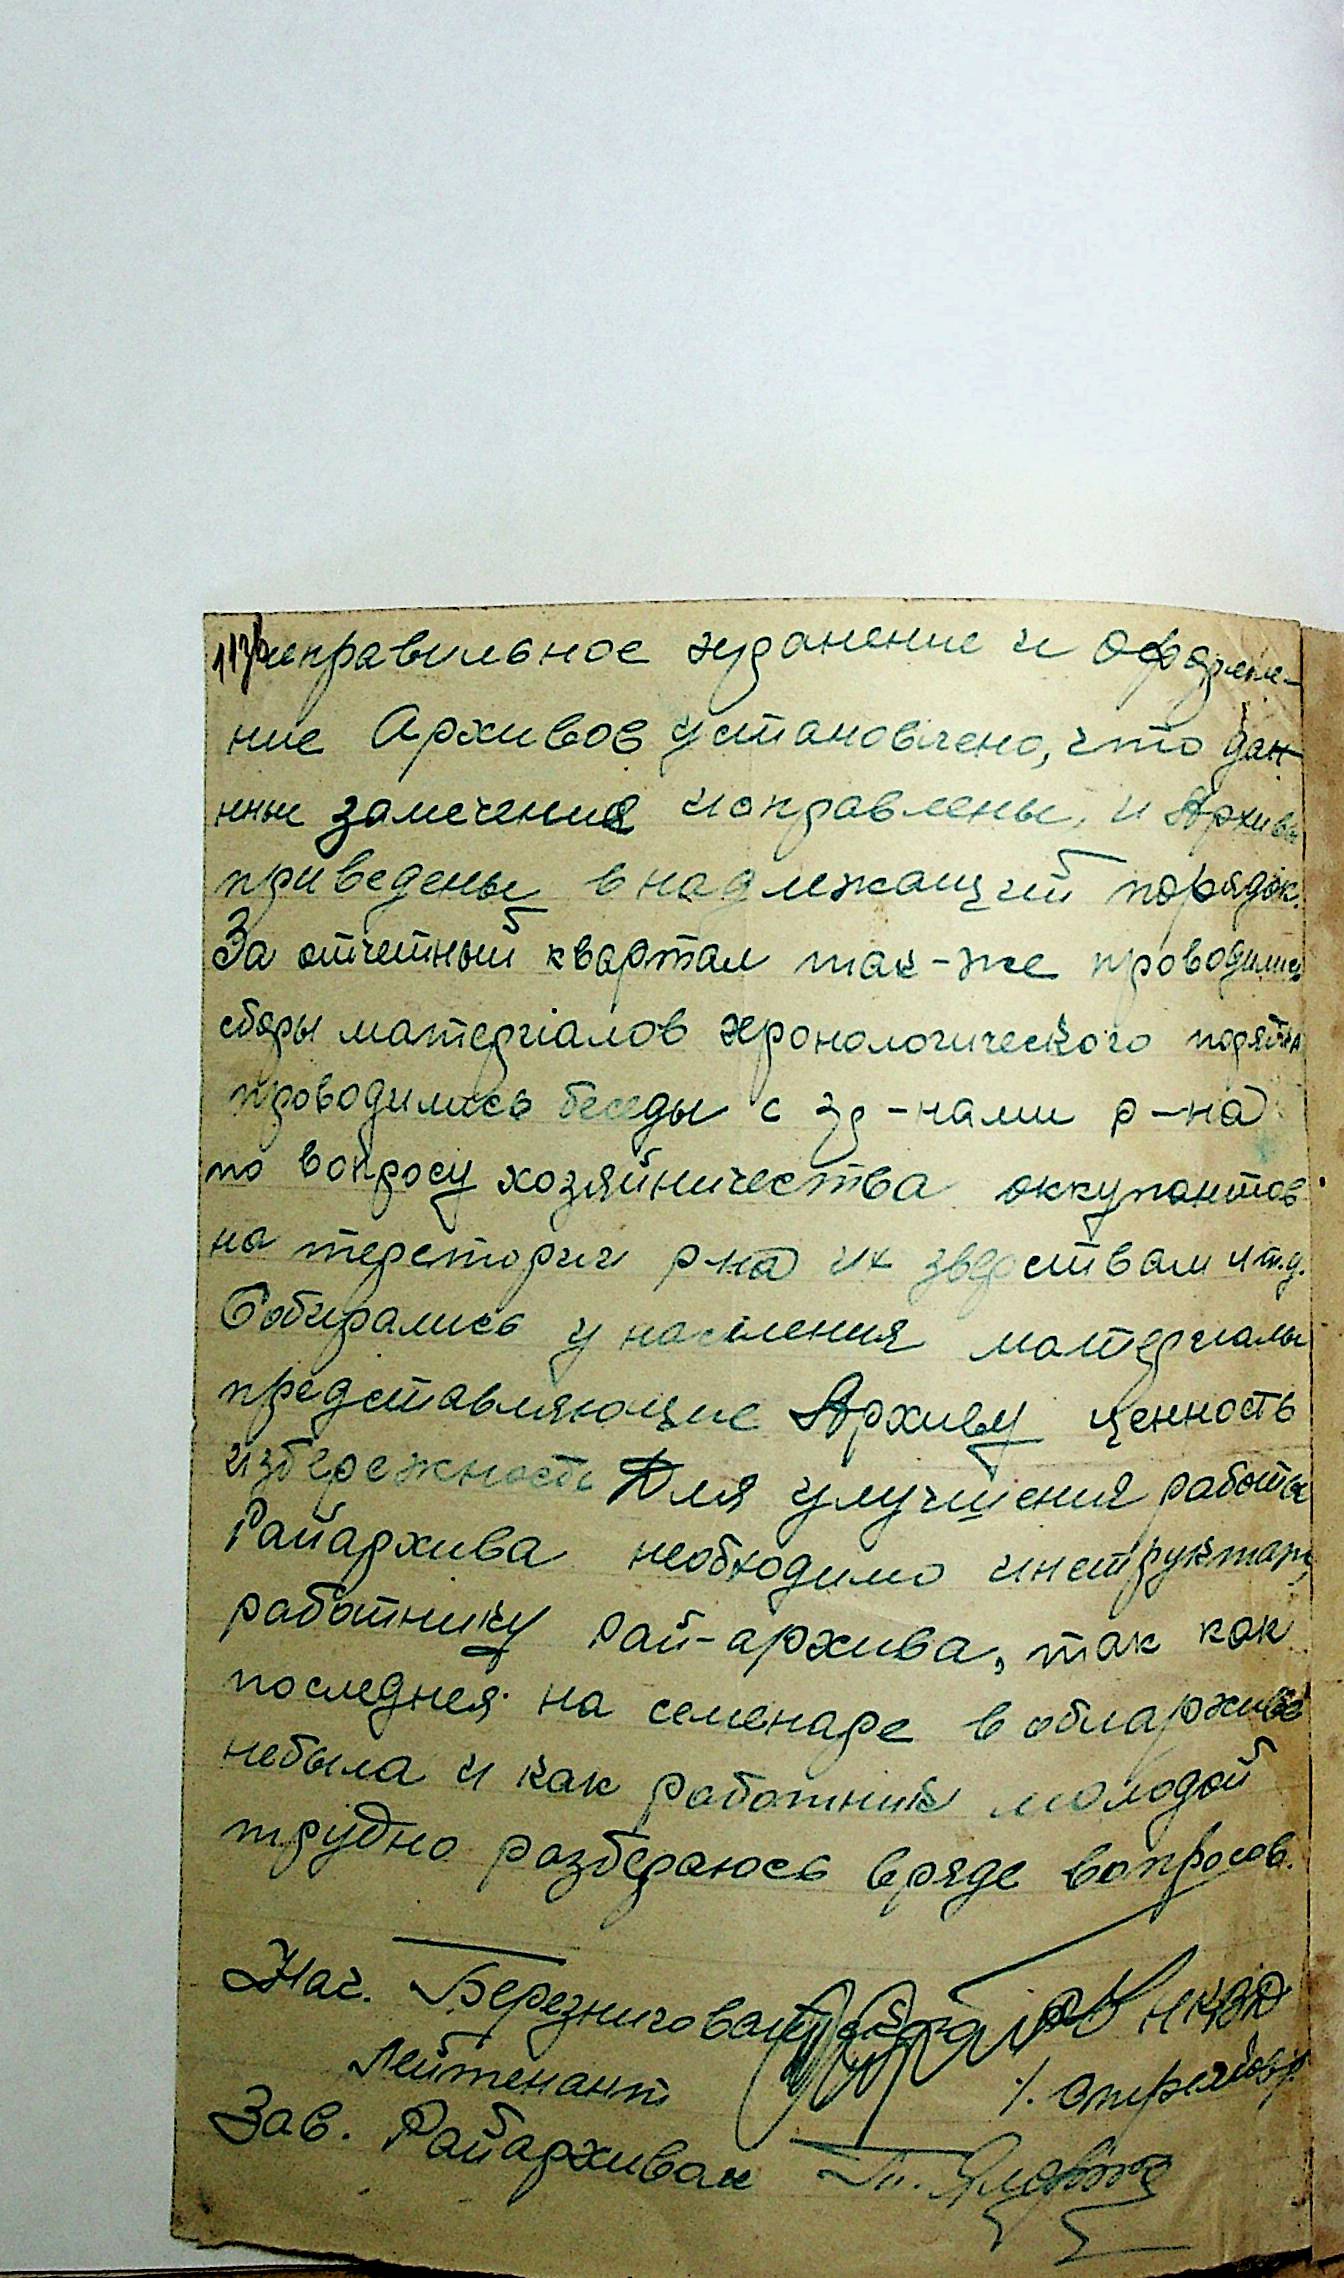 неправильное хранение и оформле-
ние Архивов установлено, что дан-
ные замечения исправлены, и Архивы
приведены в надлежащий порядок.
За отчетный квартал так-же проводились
сборы материалов хронологического порядка
проводились беседы с гр-нами р-на
по вопросу хозяйничества оккупантов
на теретории р-на их зверствам и т.д.
Собирались у населения материалы
представляющие Архиву ценность
избережность Для улучшения работы
Райархива необходимо инструктаж
работнику Рай-архива, так как
последнея на семенаре в облархиве
небыла и как работник молодой
трудно разбераюсь вряде вопросов.
Нач. Березниговат РО НКВД
Лейтенант
Зав. Райархивам